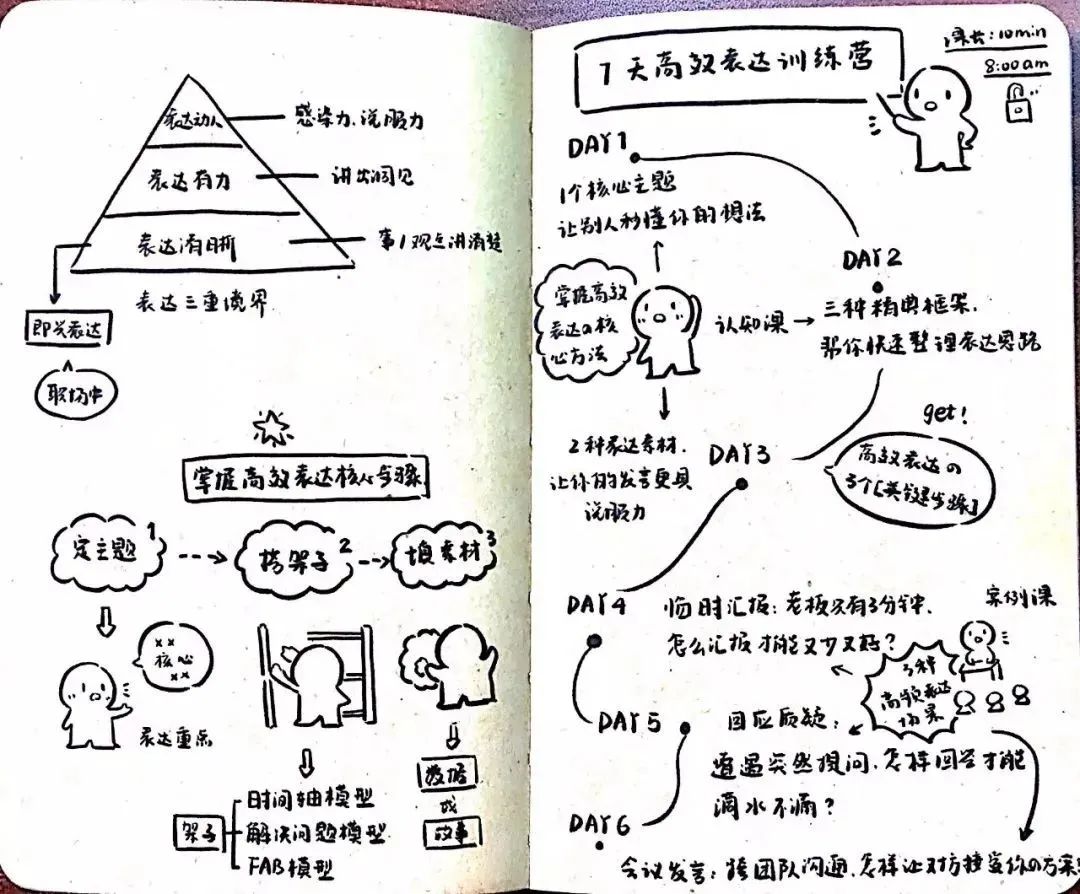 表达动人
感染力、说服力
表达有力
讲出洞见
表达清晰
事/观点讲清楚
表达三重境界
即兴表达
职场中
掌握高效表达核心步骤
定主题 1
搭架子 2
填素材 3
核心
表达重点
架子
时间轴模型
解决问题模型
FAB模型
数据
或
故事
7天高效表达训练营
课长:10min
8:00am
DAY1
1个核心主题
让别人秒懂你的想法
掌握高效
表达の核
心方法
认知课
DAY2
三种精典框架,
帮你快速整理表达思路
2种表达素材,
让你的发言更具
说服力
DAY3
get!
高效表达の
3个[关键步骤]
DAY4
临时汇报:老板只有3分钟,
怎么汇报才能又少又好?
案例课
3种
高频表达
场景
DAY5
回应质疑:
遭遇突然提问,怎样回答才能
滴水不漏?
DAY6
会议发言:跨团队沟通,怎样让对方接受你の方案